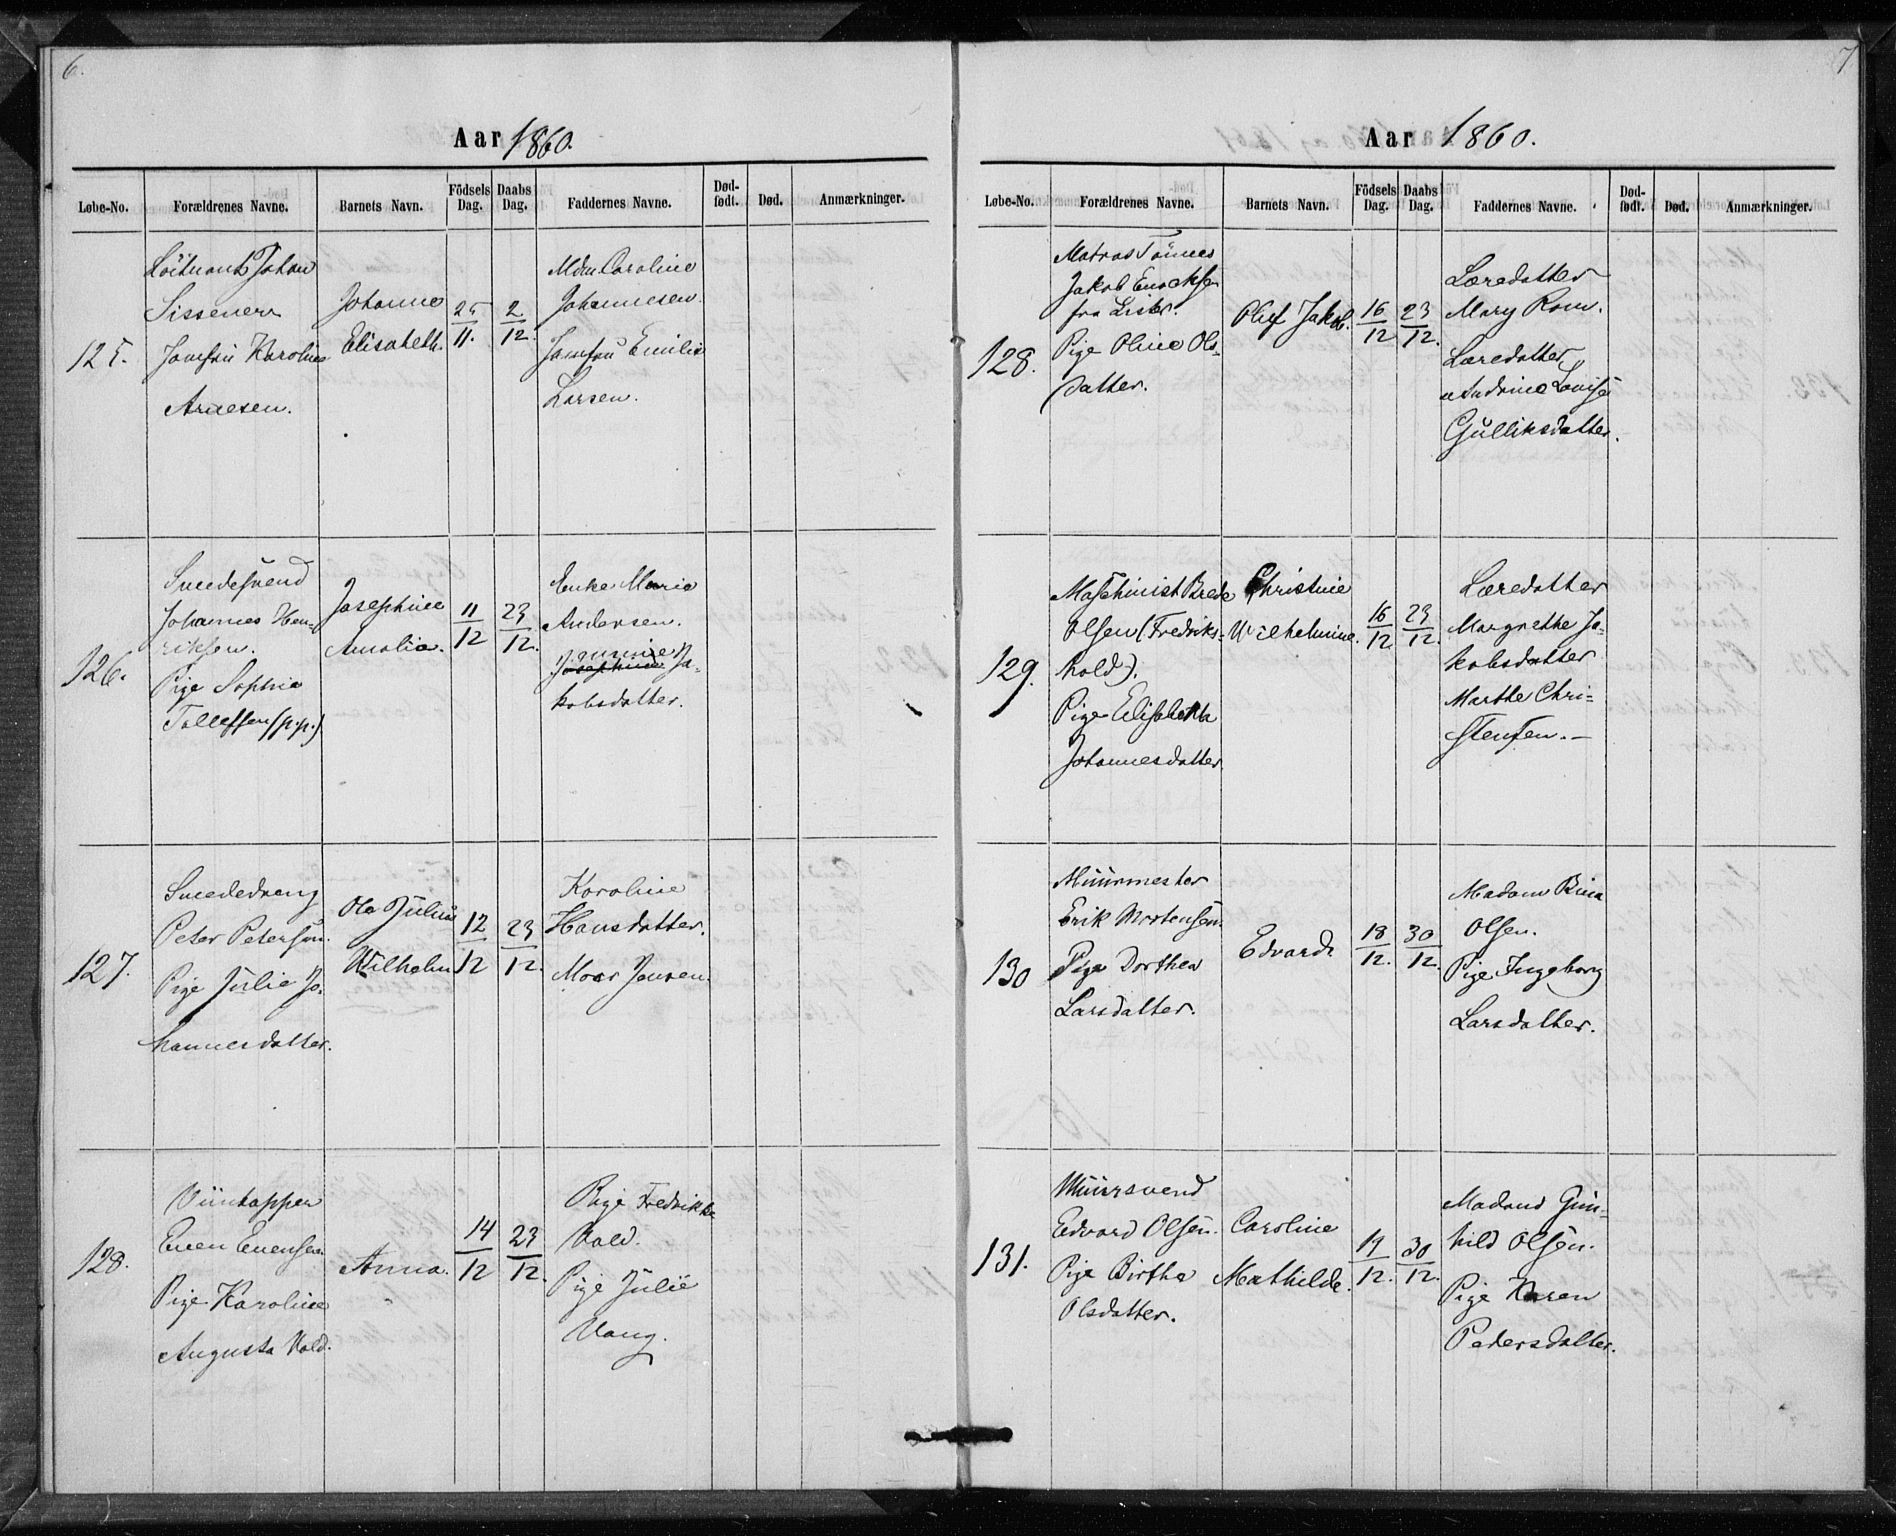 6.
Aar 1860.
Løbe-No. Forældrenes Navne. Barnets Navn. Födsels Dag. Daabs Dag. Faddernes Navne. Død-født. Død. Anmærkninger.
125.
Löitnant Johan
Sissener
Jomfru Karoline
Arnesen.
Johanne
Elisabeth.
25/11.
2/12.
Mdm Caroline
Johannesen.
Jomfru Emilie
Larsen.
126.
Smedesvend
Johannes Hen-
riksen.
Pige Sophie
Tollefsen (p.p.)
Josephine
Amalie.
11/12
23/12.
Enke Marie
Andersen.
Josephine Ja-
kobsdatter.
127.
Smededreng
Peter Petersen.
Pige Julie Jo-
hannesdatter.
Ole Julius
Wilhelm
12/12
23/12.
Karoline
Hansdatter.
Moer Jensen.
128.
Viintapper
Even Evensen
Pige Karoline
Augusta Vold.
Anna.
14/12
23/12.
Pige Fredrikke
Vold.
Pige Julie
Vang.
7
Aar 1860.
Løbe-No. Forældrenes Navne. Barnets Navn. Födsels Dag. Daabs Dag. Faddernes Navne. Død-født. Død. Anmærkninger.
128.
Matros Tönnes
Jakob Enocksen
fra Lister.
Pige Oline Ols-
datter.
Oluf Jakob.
16/12
23/12.
Læredatter
Mary Rom.
Læredatter
Andrine Louise
Gulliksdatter.
129.
Maschinist Brede
Olsen (Fredriks-
hold).
Pige Elisabeth
Johannesdatter.
Christine
Wilhelmine.
16/12
23/12.
Læredatter
Margrethe Ja-
kobsdatter
Marthe Chri-
stensen.—
130
Muurmester
Erik Mortensen.
Pige Dorthea
Larsdatter.
Edvard
18/12.
30/12.
Madam Rina
Olsen.
Pige Ingeborg
Larsdatter.
131.
Muursvend
Edvard Olsen.
Pige Birthe
Olsdatter.
Caroline
Mathilde.
19/12.
30/12.
Madam Gun-
hild Olsen.
Pige Karen
Pedersdatter.